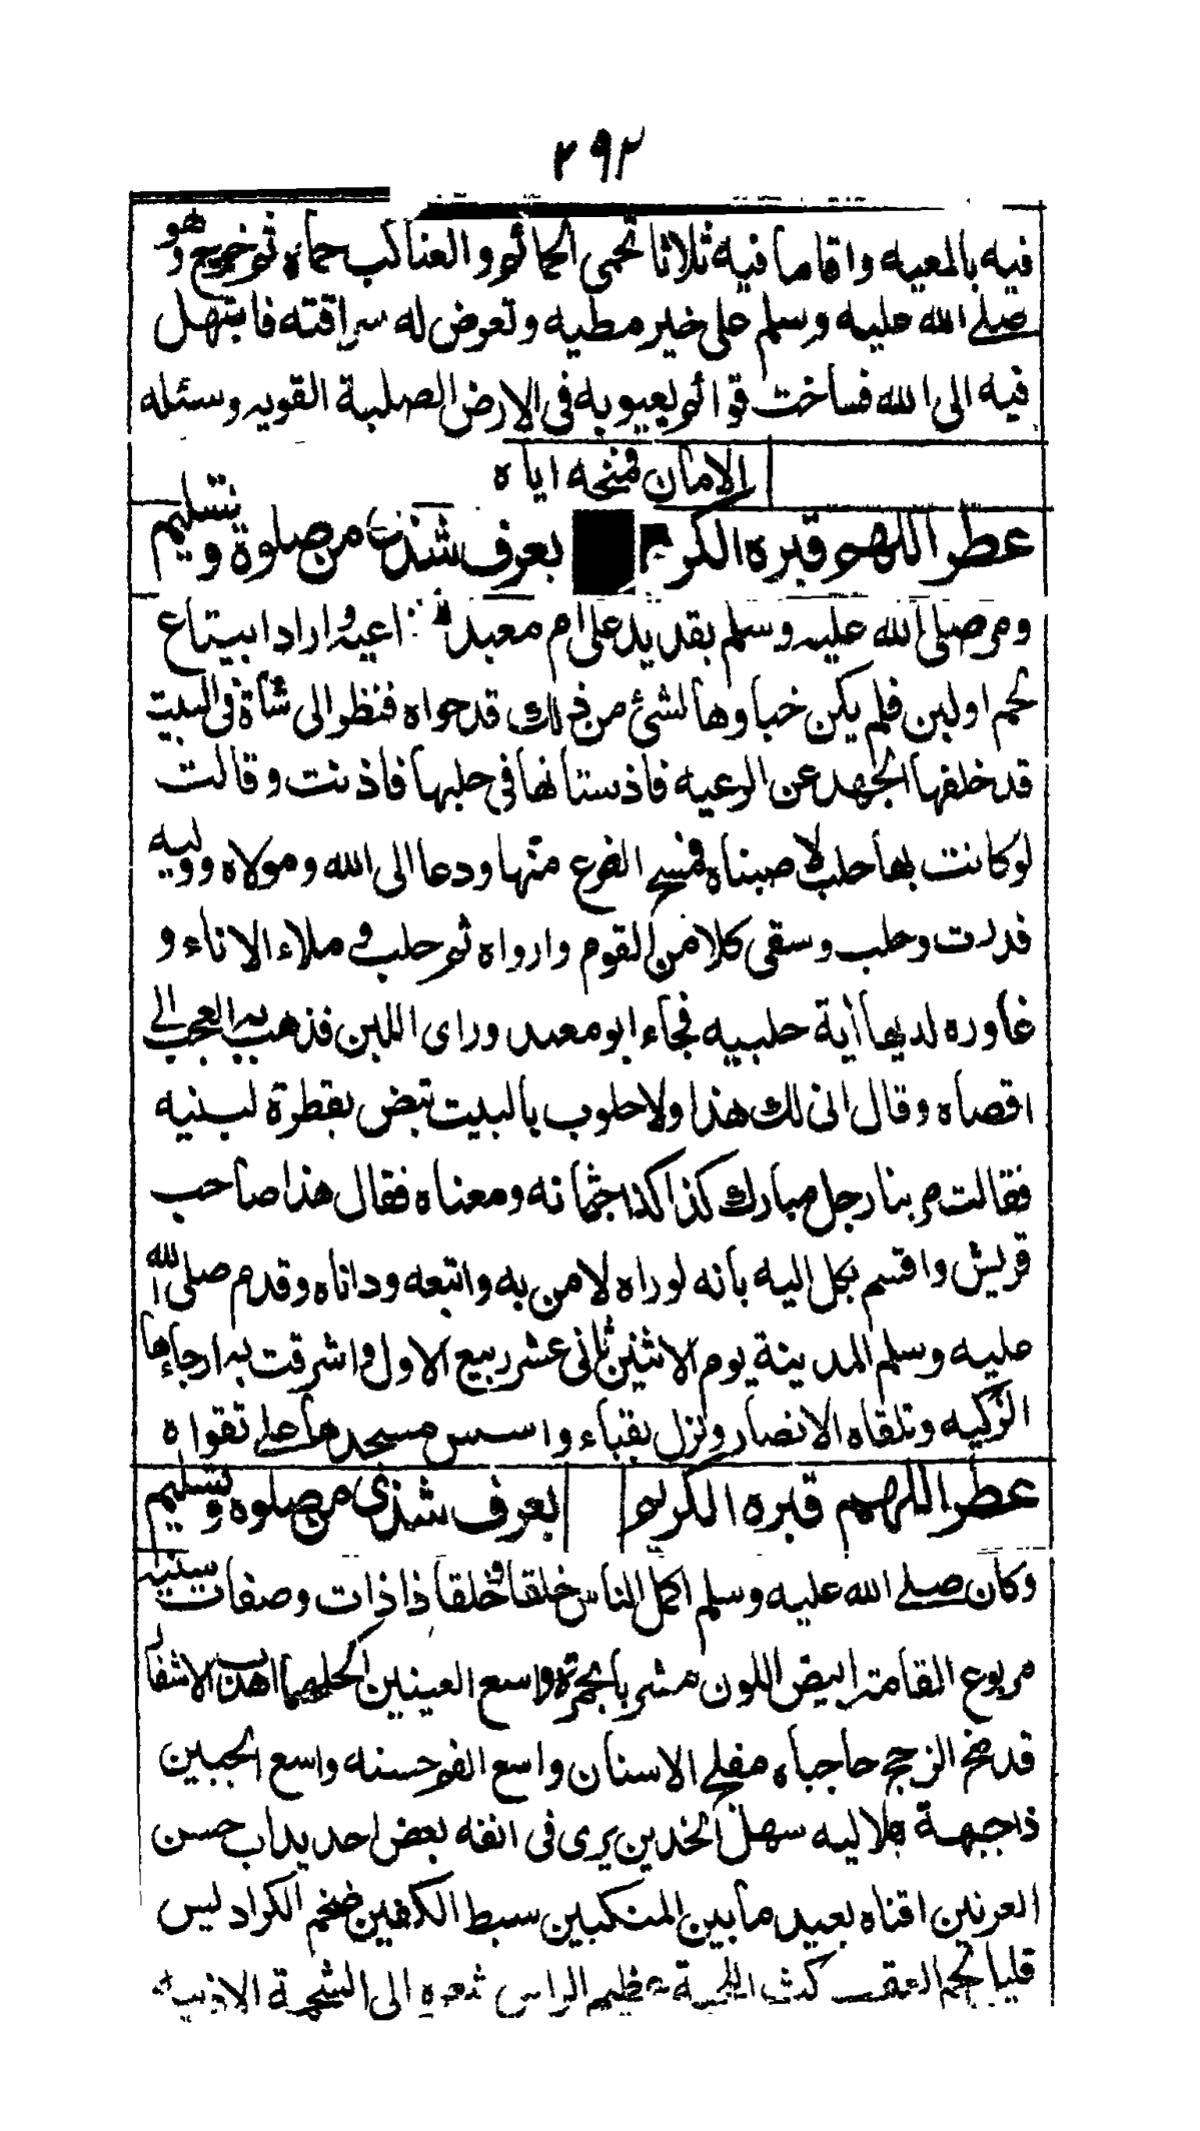 ٢٩٢
فيه بالمعيه واقاما فيه ثلاثا تحمى الحمائم والعناكب حماه ثم خرج وهو
صلے الله عليه وسلم على خير مطيه وتعرض له سراقته فابتهل
فيه الى الله فساخت قوائم يعبوبه فى الارض الصلبة القويه وسئله
الامان فمنحه اياه
عطر اللهم قبره الكريم بعرف شذى من صلوة وتسليم
ومر صلى الله عليه وسلم بقديد على ام معبد اراد ابتياع
لحم اولبن فلم يكن خباوها لشئ من ذلك قد حواه فنظر الى شاة فى البيت
قد خلفها الجهد عن الرعيه فاذستانها فى حلبها فاذنت وقالت
لو كانت بها حلب لا صبناه فمسح الضرع منها ودعا الى الله ومولاه ووليه
فدرت وحلب وسقى كلا من القوم وارواه ثم حلب فى ملاء الاناء و
غاوره لديها أية حلبيه فجاء ابو معبد وراى اللبن فذهب به العجب الى
اقصاه وقال انى لك هذا ولا حلوب بالبيت تبض بقطرة لبنيه
فقالت مر بنا رجل مبارك كذا كذا جثمانه ومعناه فقال هذا صاحب
قريش واقسم بكل اليه بأنه لوراه لامن به واتبعه وداناه وقدم صلى الله
عليه وسلم المدينة يوم الاثنين ثانى عشر ربيع الاول واشرقت به ارجاءها
الزكيه وتلقاه الانصار ونزل بقباء واسس مسجدها على تقواه
عطر اللهم قبره الكريم بعرف شذى من صلوه وتسليم
وكان صلے الله عليه وسلم اكمل الناس خلقا وخلقا ذا ذات وصفات سنيه
مربوع القامة ابيض اللون مشربا بحمرة واسع العينين اكحلهما اهدب الاشفار
قد منح الزجج حاجباه مفلج الاسنان واسع الفم حسنه واسع الجبين
ذا جبهة هلاليه سهل الخدين يرى فى انفه بعض احديداب حسن
العرنين اقناه بعيد ما بين المنكبين سبط الكفين ضخم الكراديس
قليل لحم العقب كث اللحية عظيم الراس شعره الى الشحمة الاذنيه